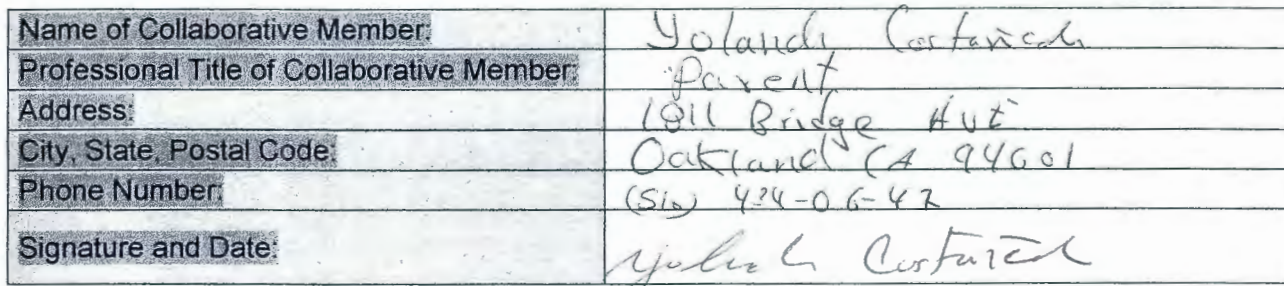 Name of Collaborative Member: Yolanda Castañeda
Professional Title of Collaborative Member: Parent
Address: 1811 Bridge Ave
City, State, Postal Code: Oakland CA 94601
Phone Number: (510)
Signature and Date: